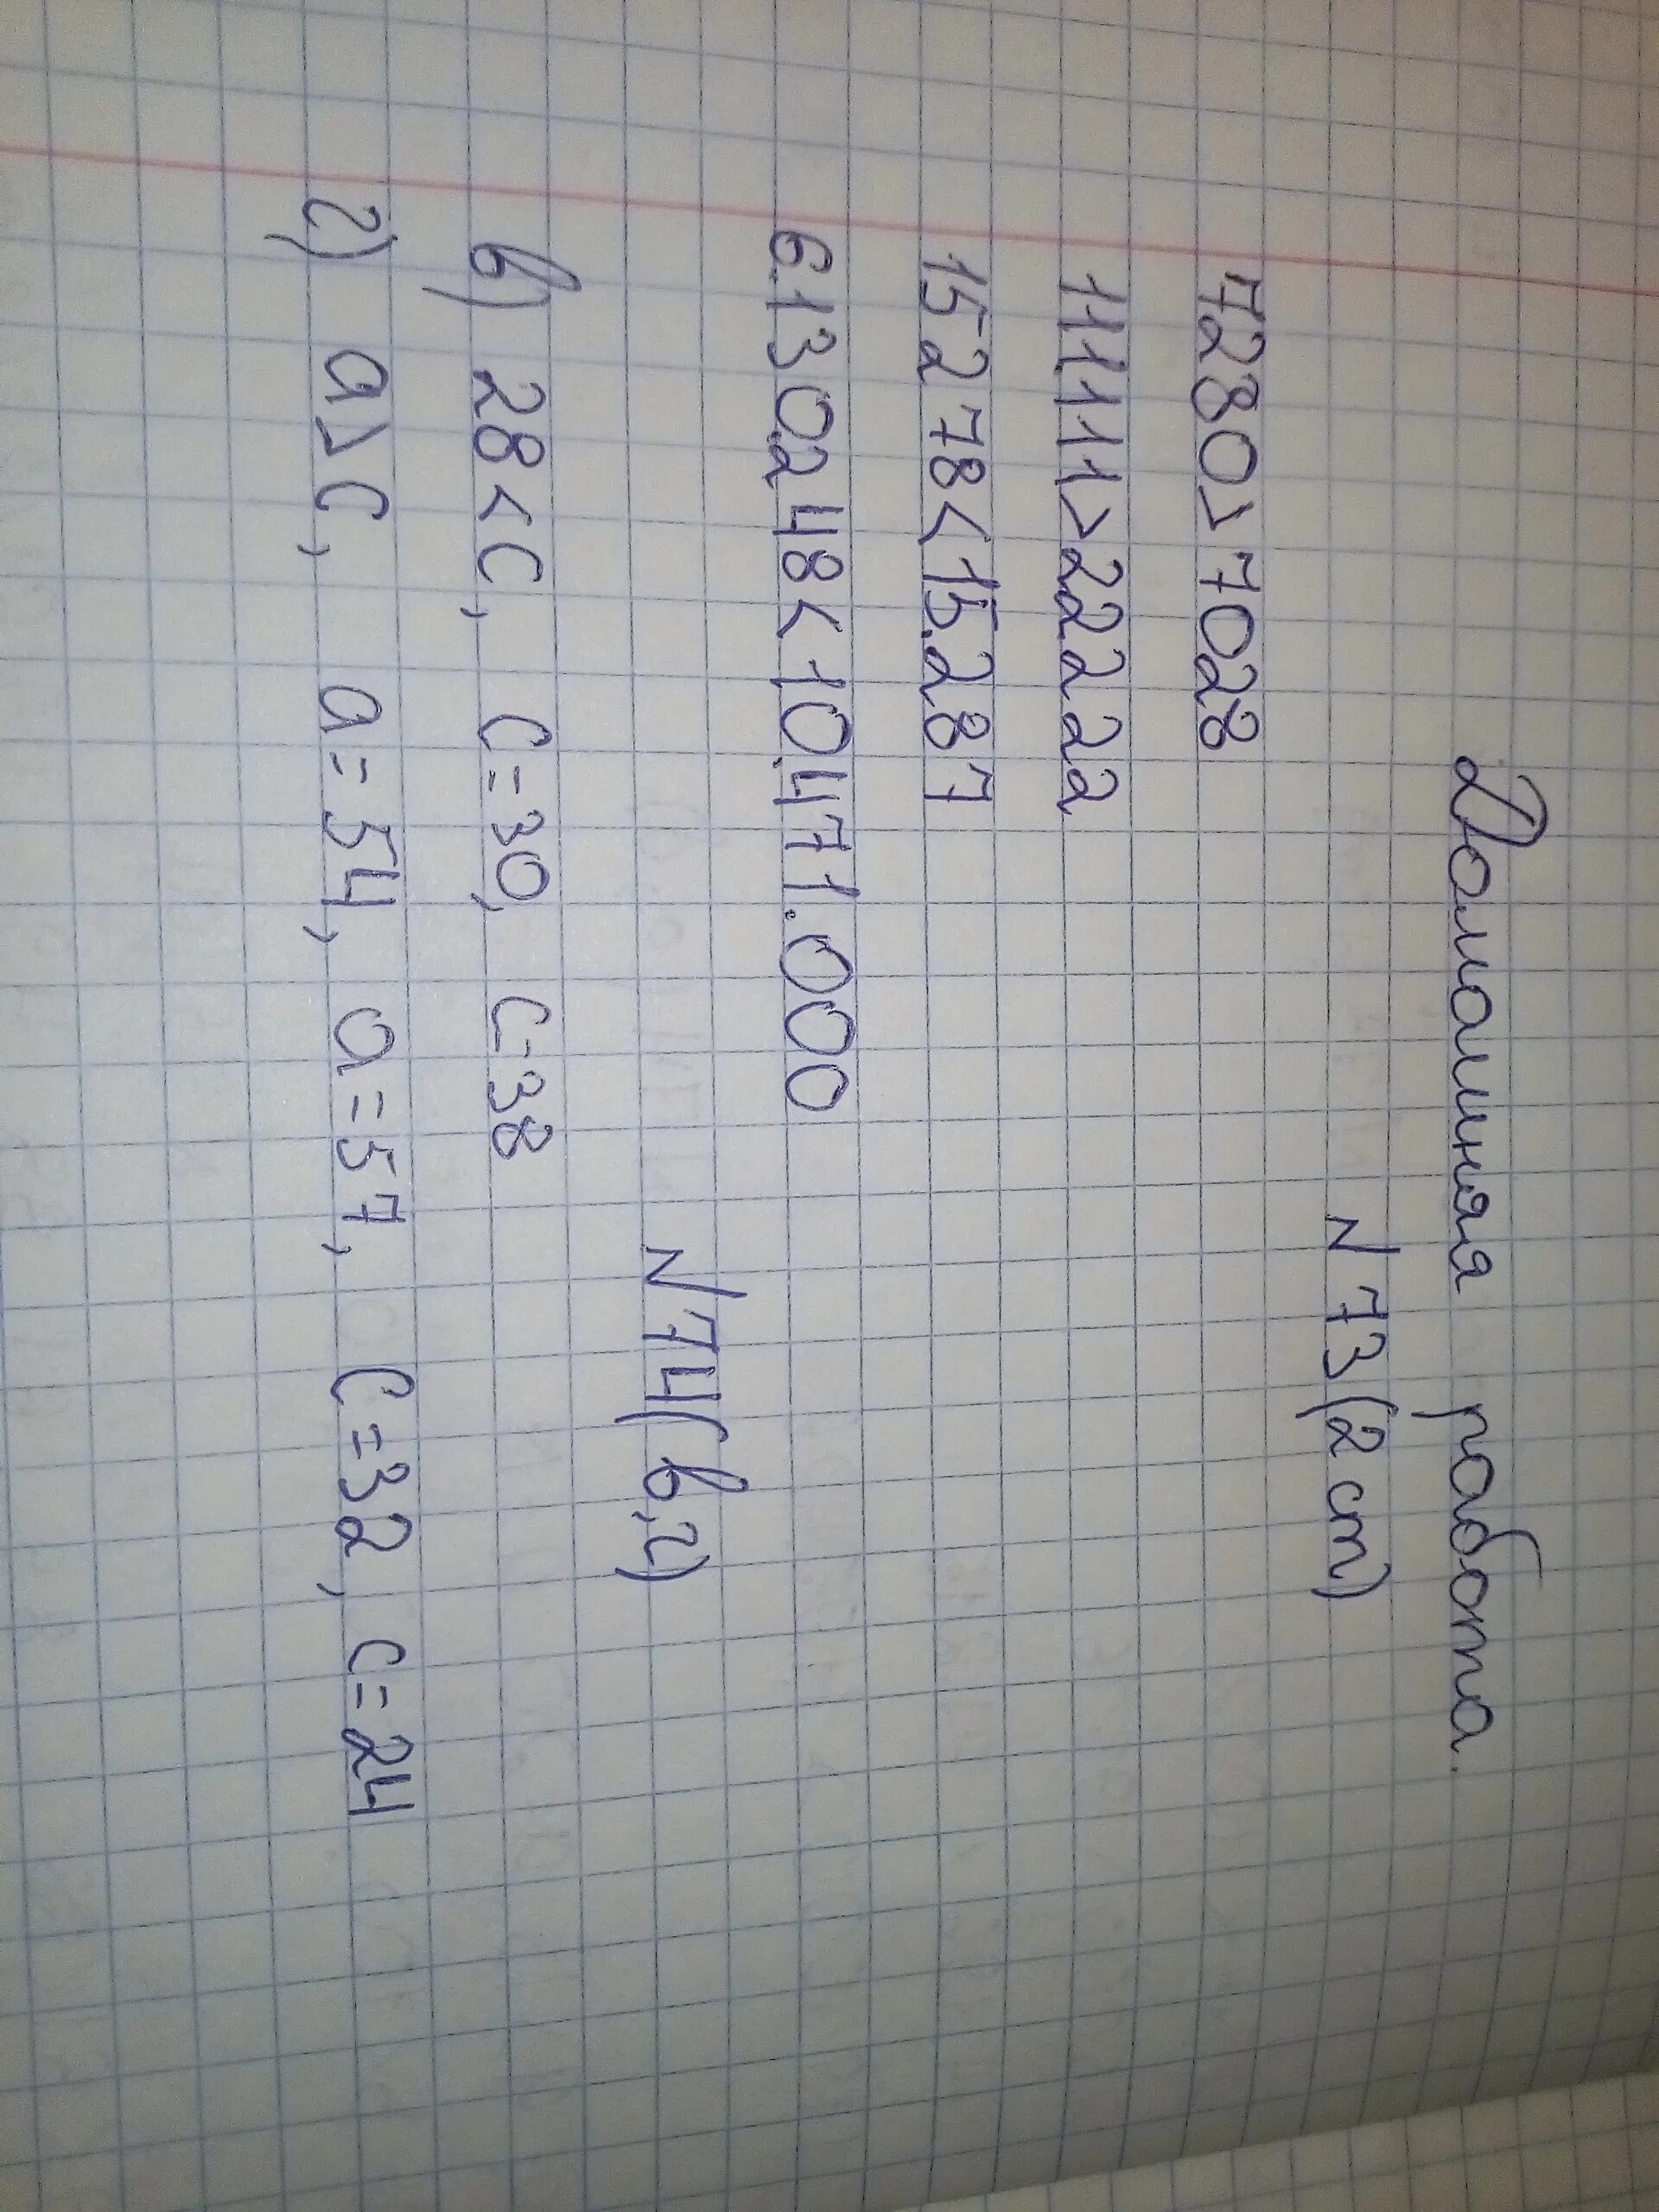 Домашняя работа.
N 73(2 ст)
7280>7028
111111>22222
15278<15.287
6.130.248<10.471.000
N 74(в,г)
в) 28<с, с=30, с=38
г) а>с, а=54, а=57, с=32, с=24